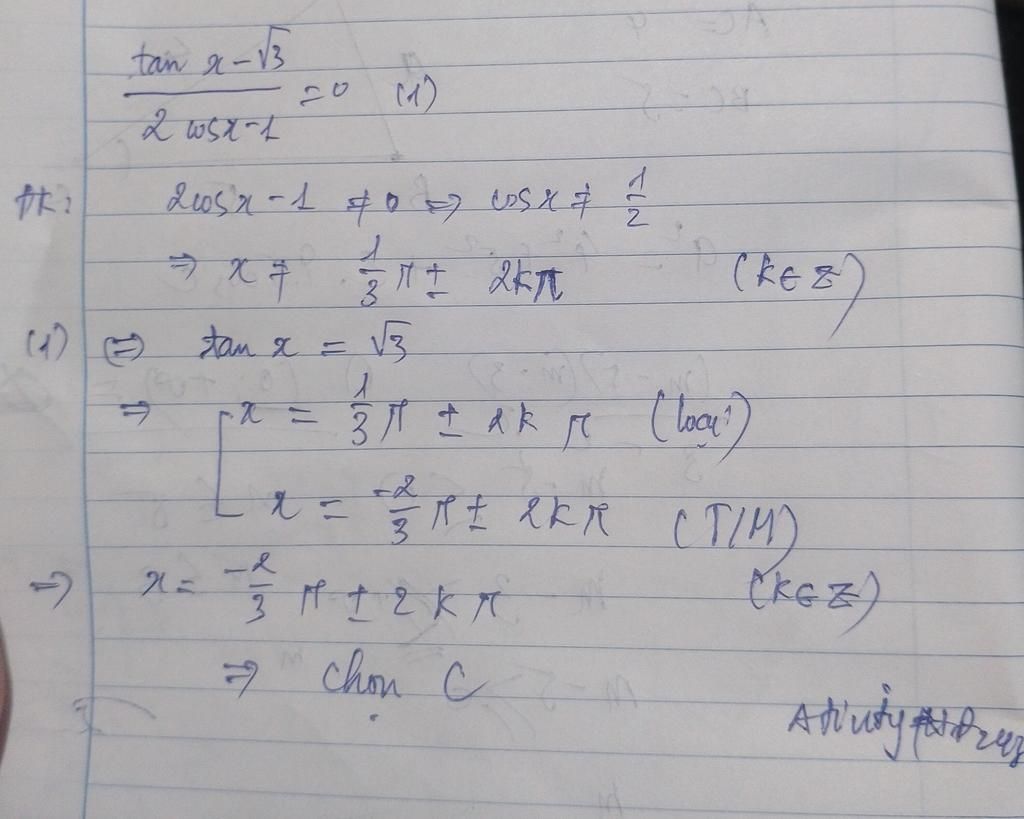 tan x - √3 / 2 cosx - 1 = 0 (1)
ĐK: 2cosx - 1 ≠ 0 => cosx ≠ 1/2
=> x ≠ 1/3 π ± 2kπ (k ∈ Z)
(1) <=> tan x = √3
=> [ x = 1/3 π ± 2kπ (loại)
x = -2/3 π ± 2kπ (T/M)
=> x = -2/3 π ± 2kπ (k ∈ Z)
=> Chọn C